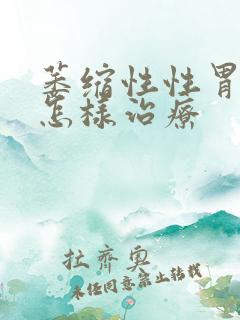 萎缩性性胃
怎样治疗
杜齐奥
未经同意禁止转载